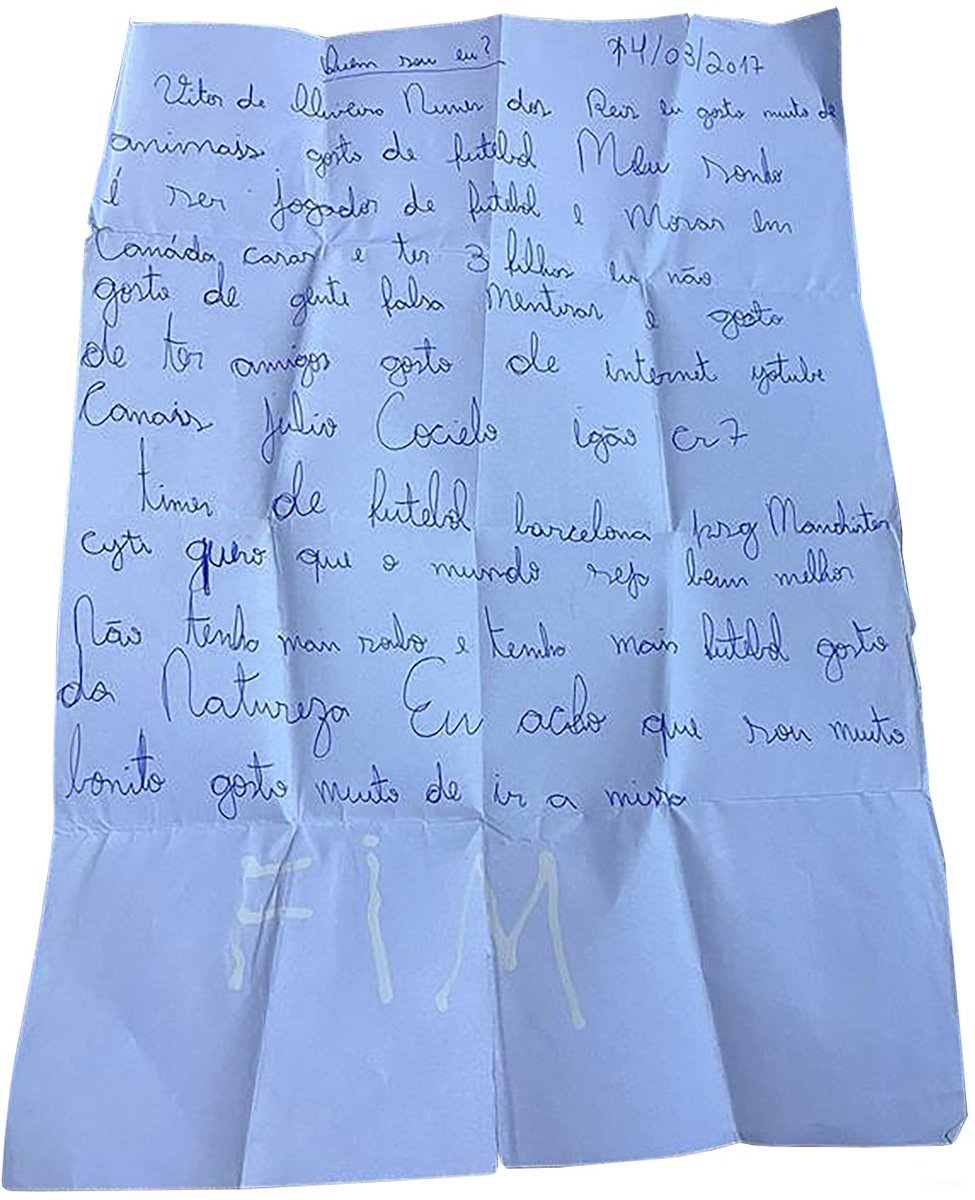 Quem sou eu? 14/03/2017
Vitor de Oliveira Nunes dos Reis eu gosto muito de
animais gosto de futebol Meu sonho
é ser jogador de futebol e Morar em
Canáda casar e ter 3 filhos eu não
gosto de gente falsa Mentiras e gosto
de ter amigos gosto de internet yotube
Canais Júlio Cocielo Igão cr7
times de futebol barcelona psg Manchester
cyti quero que o mundo seja bem melhor
Não tenha mais robo e tenha mais futebol gosto
da Natureza Eu acho que sou muito
bonito gosto muito de ir a missa
FIM